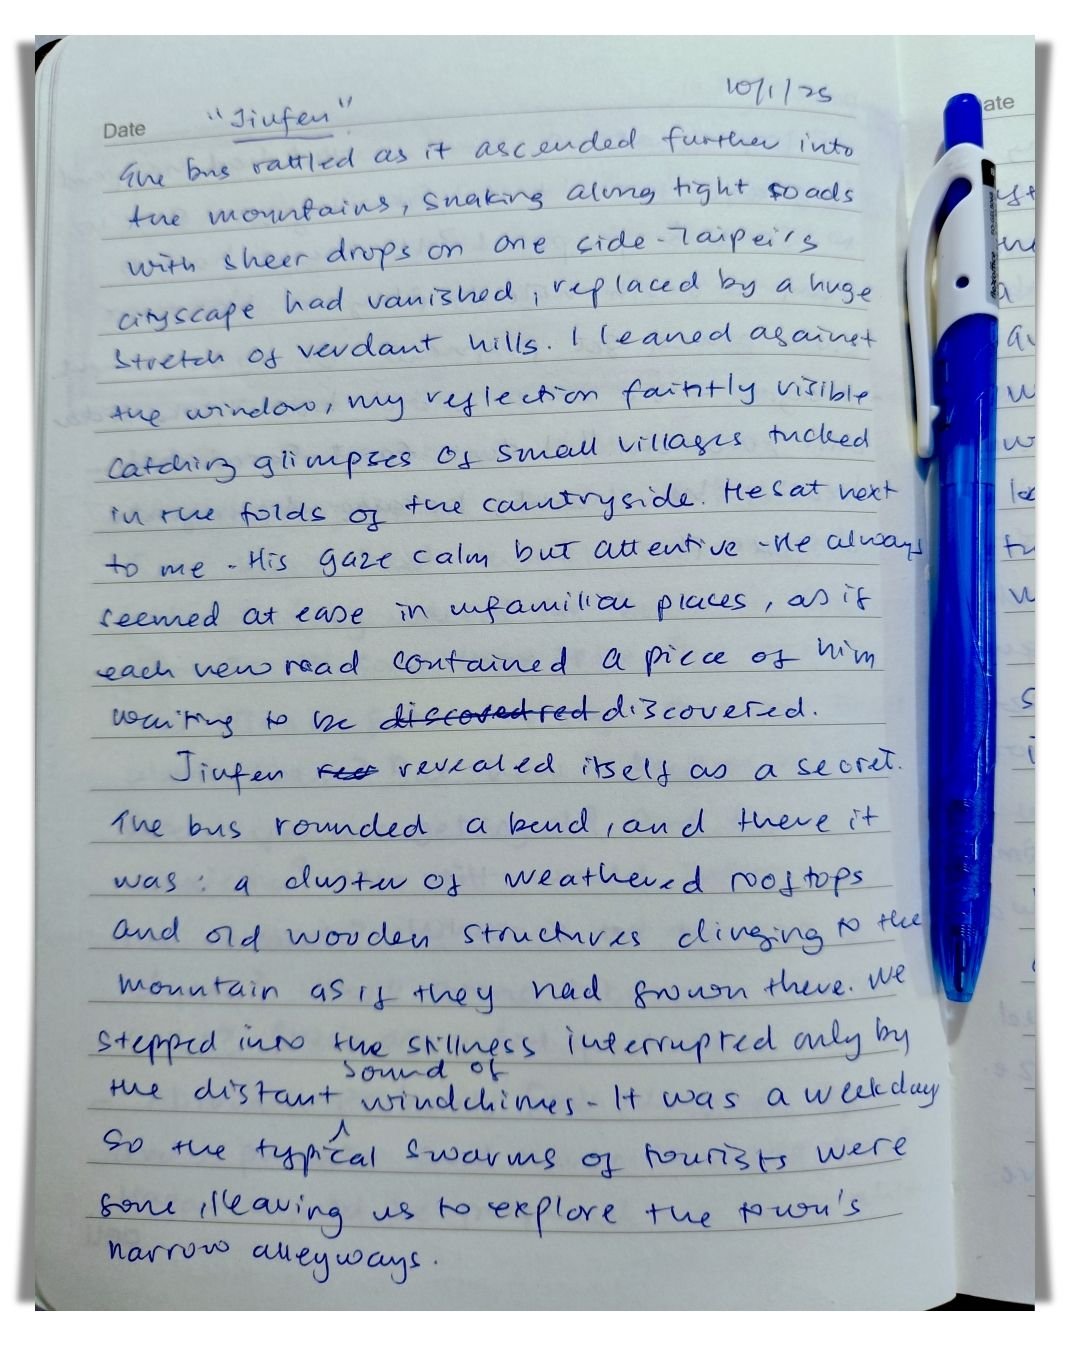 10/1/25
Date "Jiufen"
The bus rattled as it ascended further into
the mountains, snaking along tight roads
with sheer drops on one side. Taipei's
cityscape had vanished, replaced by a huge
stretch of verdant hills. I leaned against
the window, my reflection faintly visible
catching glimpses of small villages tucked
in the folds of the countryside. He sat next
to me. His gaze calm but attentive. He always
seemed at ease in unfamiliar places, as if
each new road contained a piece of him
waiting to be discovered red discovered.
Jiufen revealed itself as a secret.
The bus rounded a bend, and there it
was: a cluster of weathered rooftops
and old wooden structures clinging to the
mountain as if they had grown there. We
stepped into the stillness interrupted only by
sound of
the distant windchimes. It was a weekday
so the typical swarms of tourists were
gone, leaving us to explore the town's
narrow alleyways.
ate